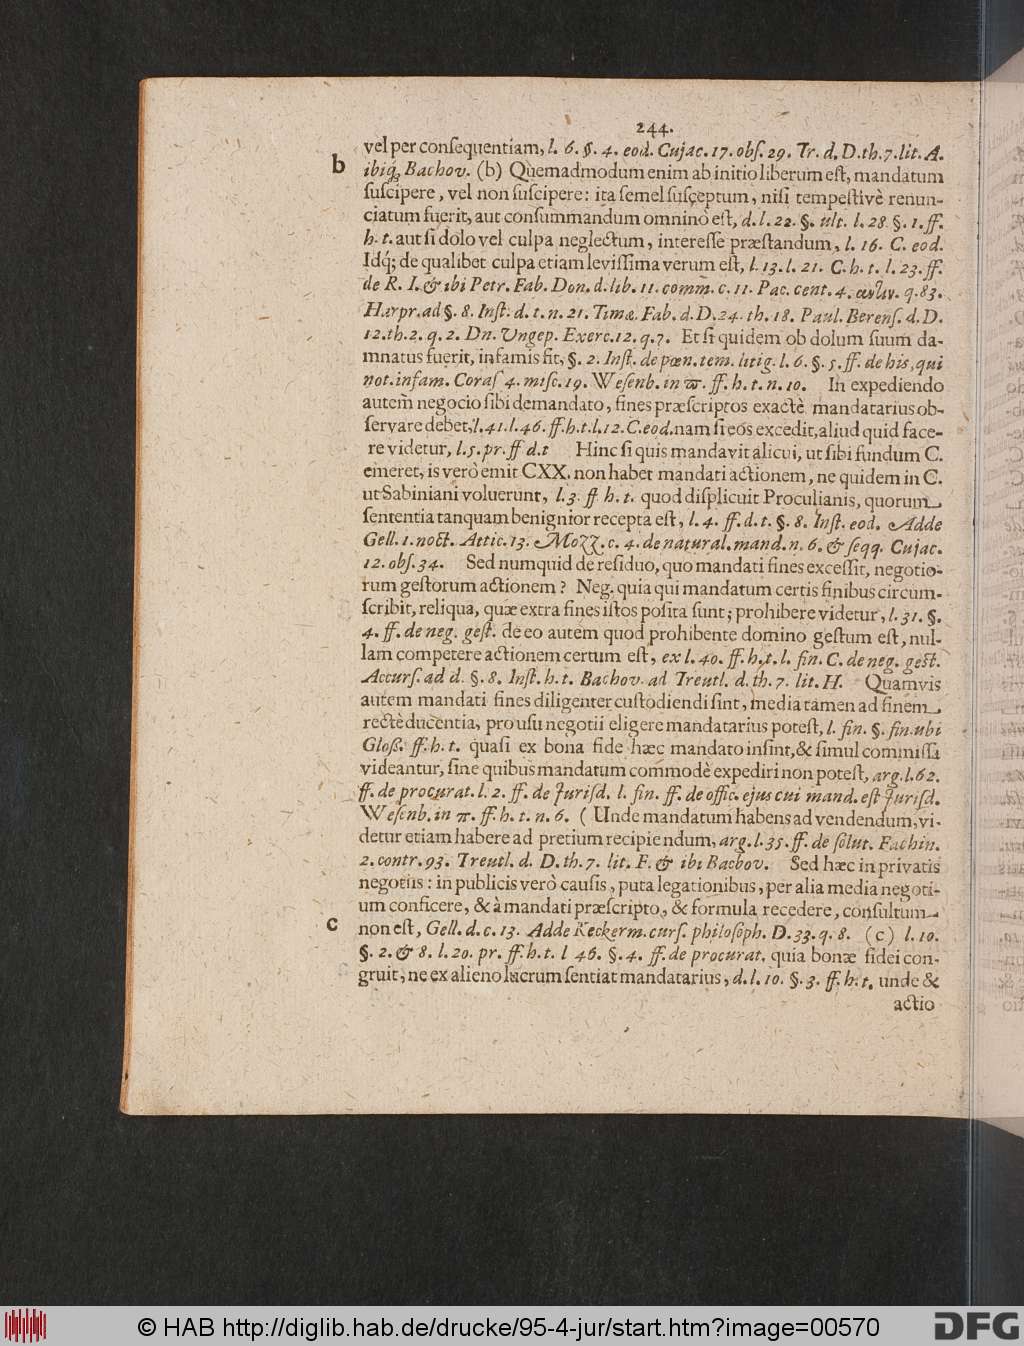 244.
vel per conſequentiam, l. 6. §. 4. eod. Cujac. 17. obſ. 29. Tr. d. D. th. 7. lit. A.
b ibiq; Bachov. (b) Quemadmodum enim ab initio liberum eſt, mandatum
ſuſcipere, vel non ſuſcipere: ita ſemel ſuſceptum, niſi tempeſtivè renun-
ciatum fuerit, aut conſummandum omninò eſt, d. l. 22. §. ult. l. 28. §. 1. ff.
h. t. aut ſi dolo vel culpa neglectum, intereſſe præſtandum, l. 16. C. eod.
Idq́; de qualibet culpa etiam leviſſima verum eſt, l. 13. l. 21. C. h. t. l. 23. ff.
de R. I. & ibi Petr. Fab. Don. d. lib. 11. com̃. c. 11. Pac. cent. 4. q. 83.
Harpr. ad §. 8. Inſt. d. t. n. 21. Timæ. Fab. d. D. 24. th. 18. Paul. Berenſ. d. D.
12. th. 2. q. 2. Dn. Ungep. Exerc. 12. q. 7. Et ſi quidem ob dolum ſuum da-
mnatus fuerit, infamis fit, §. 2. Inſt. de pœn. tem. litig. l. 6. §. 5. ff. de his, qui
not. infam. Coraſ 4. miſc. 19. Weſenb. in ϖ. ff. h. t. n. 10. In expediendo
autem̃ negocio ſibi demandato, fines præſcriptos exactè mandatarius ob-
ſervare debet, l. 41. l. 46. ff. h. t. l. 12. C. eod. nam ſi eos excedit, aliud quid face-
re videtur, l. 5. pr. ff d. t Hinc ſi quis mandavit alicui, ut ſibi fundum C.
emeret, is verò emit CXX. non habet mandati actionem, ne quidem in C.
ut Sabiniani voluerunt, l. 3. ff h. t. quod diſplicuit Proculianis, quorum
ſententia tanquam benignior recepta eſt, l. 4. ff. d. t. §. 8. Inſt. eod. Adde
Gell. 1. noct. Attic. 13. Mozz. c. 4. de natural. mand. n. 6. & ſeqq. Cujac.
12. obſ. 34. Sed numquid de reſiduo, quo mandati fines exceſſit, negotio-
rum geſtorum actionem? Neg. quia qui mandatum certis finibus circum-
ſcribit, reliqua, quæ extra fines iſtos poſita ſunt; prohibere videtur, l. 31. §.
4. ff. de neg. geſt. de eo autem quod prohibente domino geſtum eſt, nul-
lam competere actionem certum eſt, ex l. 40. ff. h. t. l. fin. C. de neg. geſt.
Accurſ. ad d. §. 8. Inſt. h. t. Bachov. ad Treutl. d. th. 7. lit. H. Quamvis
autem mandati fines diligenter cuſtodiendi ſint, media tamen ad finem
rectè ducentia, pro uſu negotii eligere mandatarius poteſt, l. fin. §. fin. ubi
Gloß. ff. h. t. quaſi ex bona fide hæc mandato inſint, & ſimul commiſſa
videantur, ſine quibus mandatum commodè expediri non poteſt, arg. l. 62.
ff. de procurat. l. 2. ff. de Juriſd. l. fin. ff. de offic. ejus cui mand. eſt Juriſd.
Weſenb. in π. ff. h. t. n. 6. ( Unde mandatum habens ad vendendum, vi-
detur etiam habere ad pretium recipiendum, arg. l. 35. ff. de ſolut. Fachin.
2. contr. 93. Treutl. d. D. th. 7. lit. F. & ibi Bachov. Sed hæc in privatis
negotiis: in publicis verò cauſis, puta legationibus, per alia media negoti-
um conficere, & à mandati præſcripto, & formula recedere, conſultum
c non eſt, Gell. d. c. 13. Adde Keckerm. curſ. philoſoph. D. 33. q. 8. (c) l. 10.
§. 2. & 8. l. 20. pr. ff. h. t. l 46. §. 4. ff. de procurat. quia bonæ fidei con-
gruit, ne ex alieno lucrum ſentiat mandatarius, d. l. 10. §. 3. ff. h. t. unde &
actio
© HAB http://diglib.hab.de/drucke/95-4-jur/start.htm?image=00570
DFG